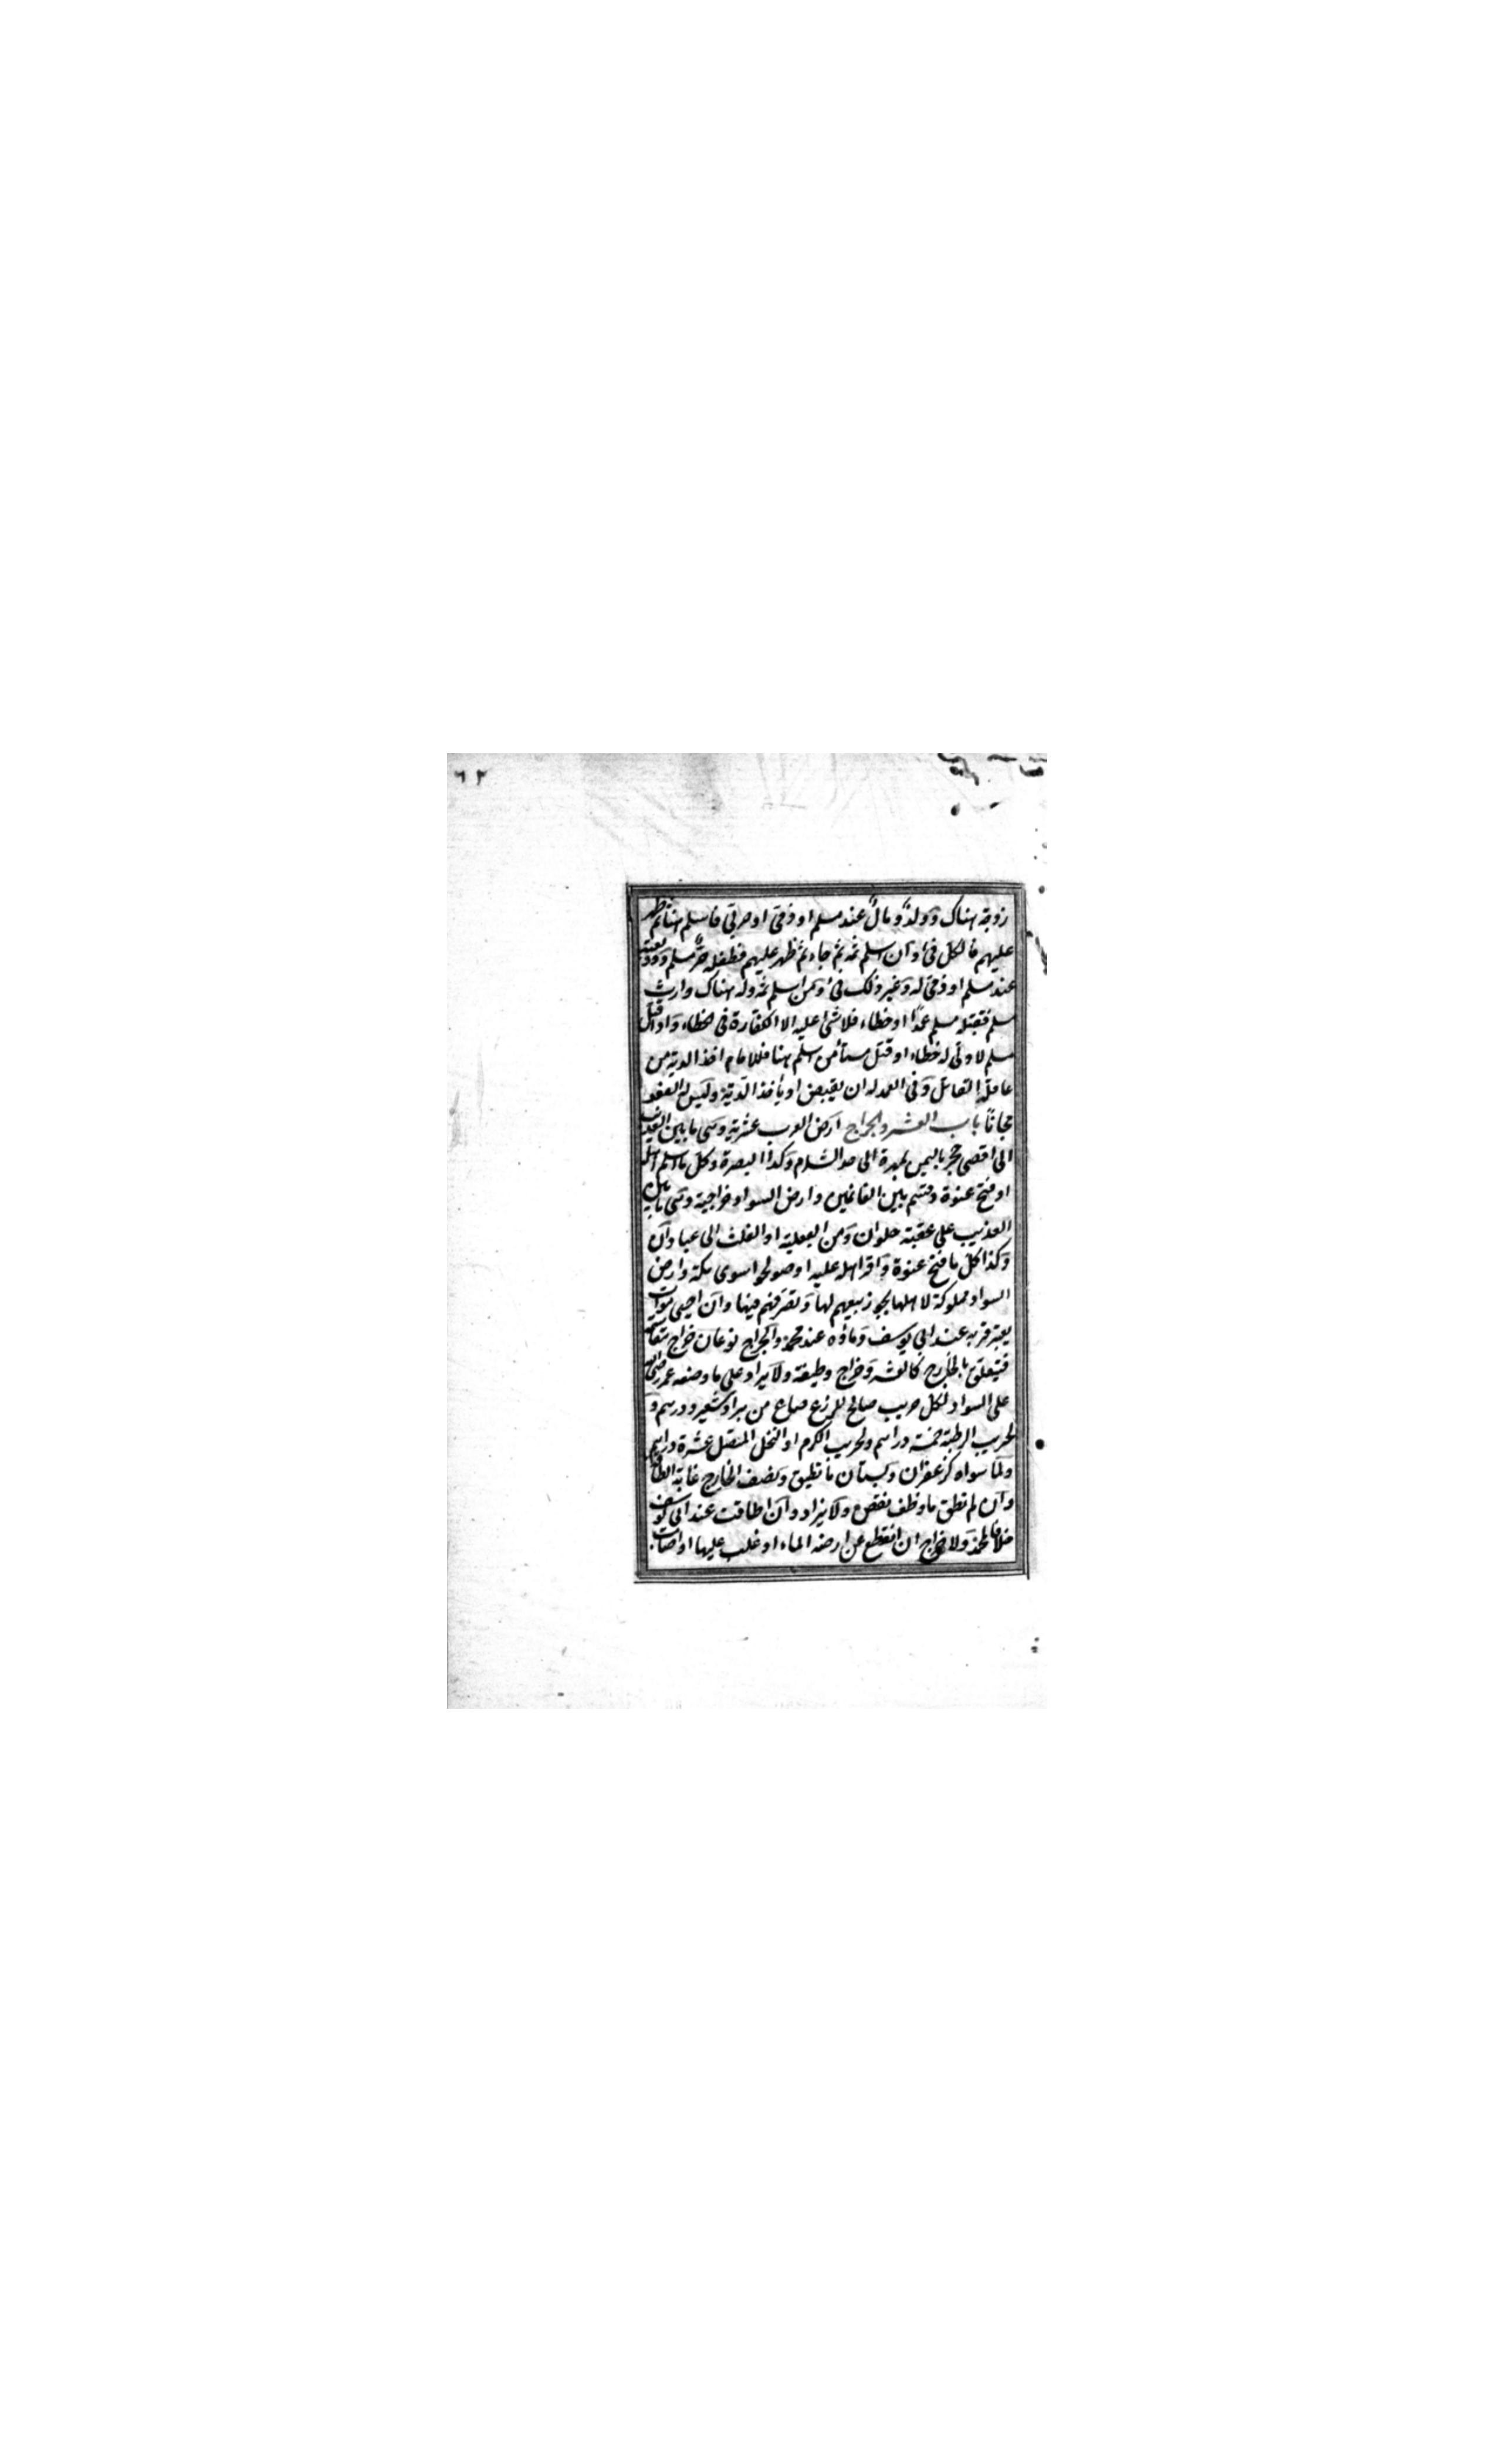 ٦٢
زوجة هناك وولد ومال عند مسلم او ذمى او حربى فاسلم هنا ثم ظهر
عليهم فالكل فئ وان اسلم ثمه ثم جاء ثم ظهر عليهم فطفله حر مسلم ووديعته
عند مسلم او ذمى له وغير ذلك فئ ومن اسلم ثمه وله هناك وارث
مسلم فقتله مسلم عمدا او خطاء فلا شئ عليه الا الكفارة فى الخطاء واذا قتل
مسلم لا ولى له خطاء او قتل مستأمن اسلم هنا فللامام اخذ الدية من
عاقلة القاتل وفى العمد له ان يقتص او يأخذ الدية وليس له العفو
مجانا باب العشر والخراج ارض العرب عشرية وهى ما بين العذيب
الى اقصى حجر باليمن بمهرة الى حد الشام وكذا البصرة وكل ما اسلم اهله
او فتح عنوة وقسم بين الغانمين وارض السواد خراجية وهى ما بين
العذيب على عقبة حلوان ومن الثعلبية او العلث الى عبادان
وكذا كل ما فتح عنوة واقر اهله عليه او صولحوا سوى مكة وارض
السواد مملوكة لاهلها يجوز بيعهم لها وتصرفهم فيها وان احيى موات
يعتبر قربه عند ابى يوسف وماؤه عند محمد والخراج نوعان خراج مقاسمة
فيتعلق بالخارج كالعشر وخراج وظيفة ولا يزاد على ما وضعه عمر رضى الله
على السواد لكل جريب صالح للزرع صاع من بر او شعير ودرهم و
لجريب الرطبة خمسة دراهم ولجريب الكرم او النخل المتصل عشرة دراهم
ولما سواه كزعفران وبستان ما تطيق ونصف الخارج غاية الطاقة
وان لم تطق ما وظف نقص ولا يزاد وان اطاقت عند ابى يوسف
خلافا لمحمد ولا خراج ان انقطع عن ارضه الماء او غلب عليها او اصاب